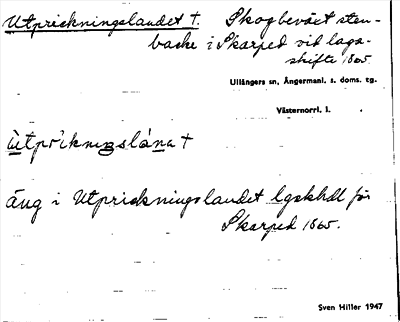 Utprickningslandet †. Skogbeväxt sten-
backe i Skarped vid laga-
skifte 1865.
Ullångers sn, Ångermanl. s. doms. tg.
Västernorrl. l.
ùtpriknıŋslána †
äng i Utprickningslandet lgskhdl för
Skarped 1865.
Sven Hiller 1947